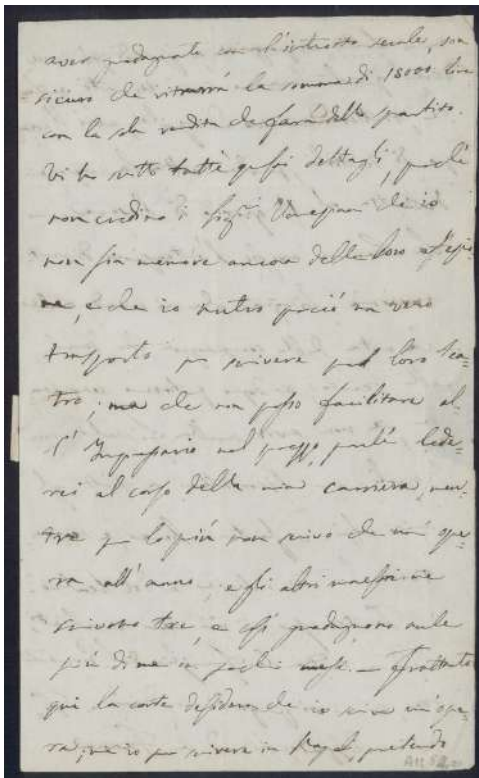 aver guadagnate con l'introito serale, son
sicuro che ritrarrà la somma di 18000 lire
con la sola vendita che farà dello spartito.
Vi ho scritto tutti questi dettagli, perché
non credino i Sig.ri Veneziani che io
non sia memore ancora della loro
, e che io nutro perciò un vero
trasporto per scrivere pel loro tea=
tro; ma che non posso facilitare al=
l'Impressario nel prezzo, perché lede=
rei al corso della mia carriera, men=
tre per lo più non scrivo che un'ope=
ra all'anno, e gli altri maestri ne
scrivono tre, e così guadagnano mille
più di me in pochi mesi. — Frattanto
qui la corte desidera che io scriva un'ope=
ra; ma io per scrivere in Napoli, pretendo